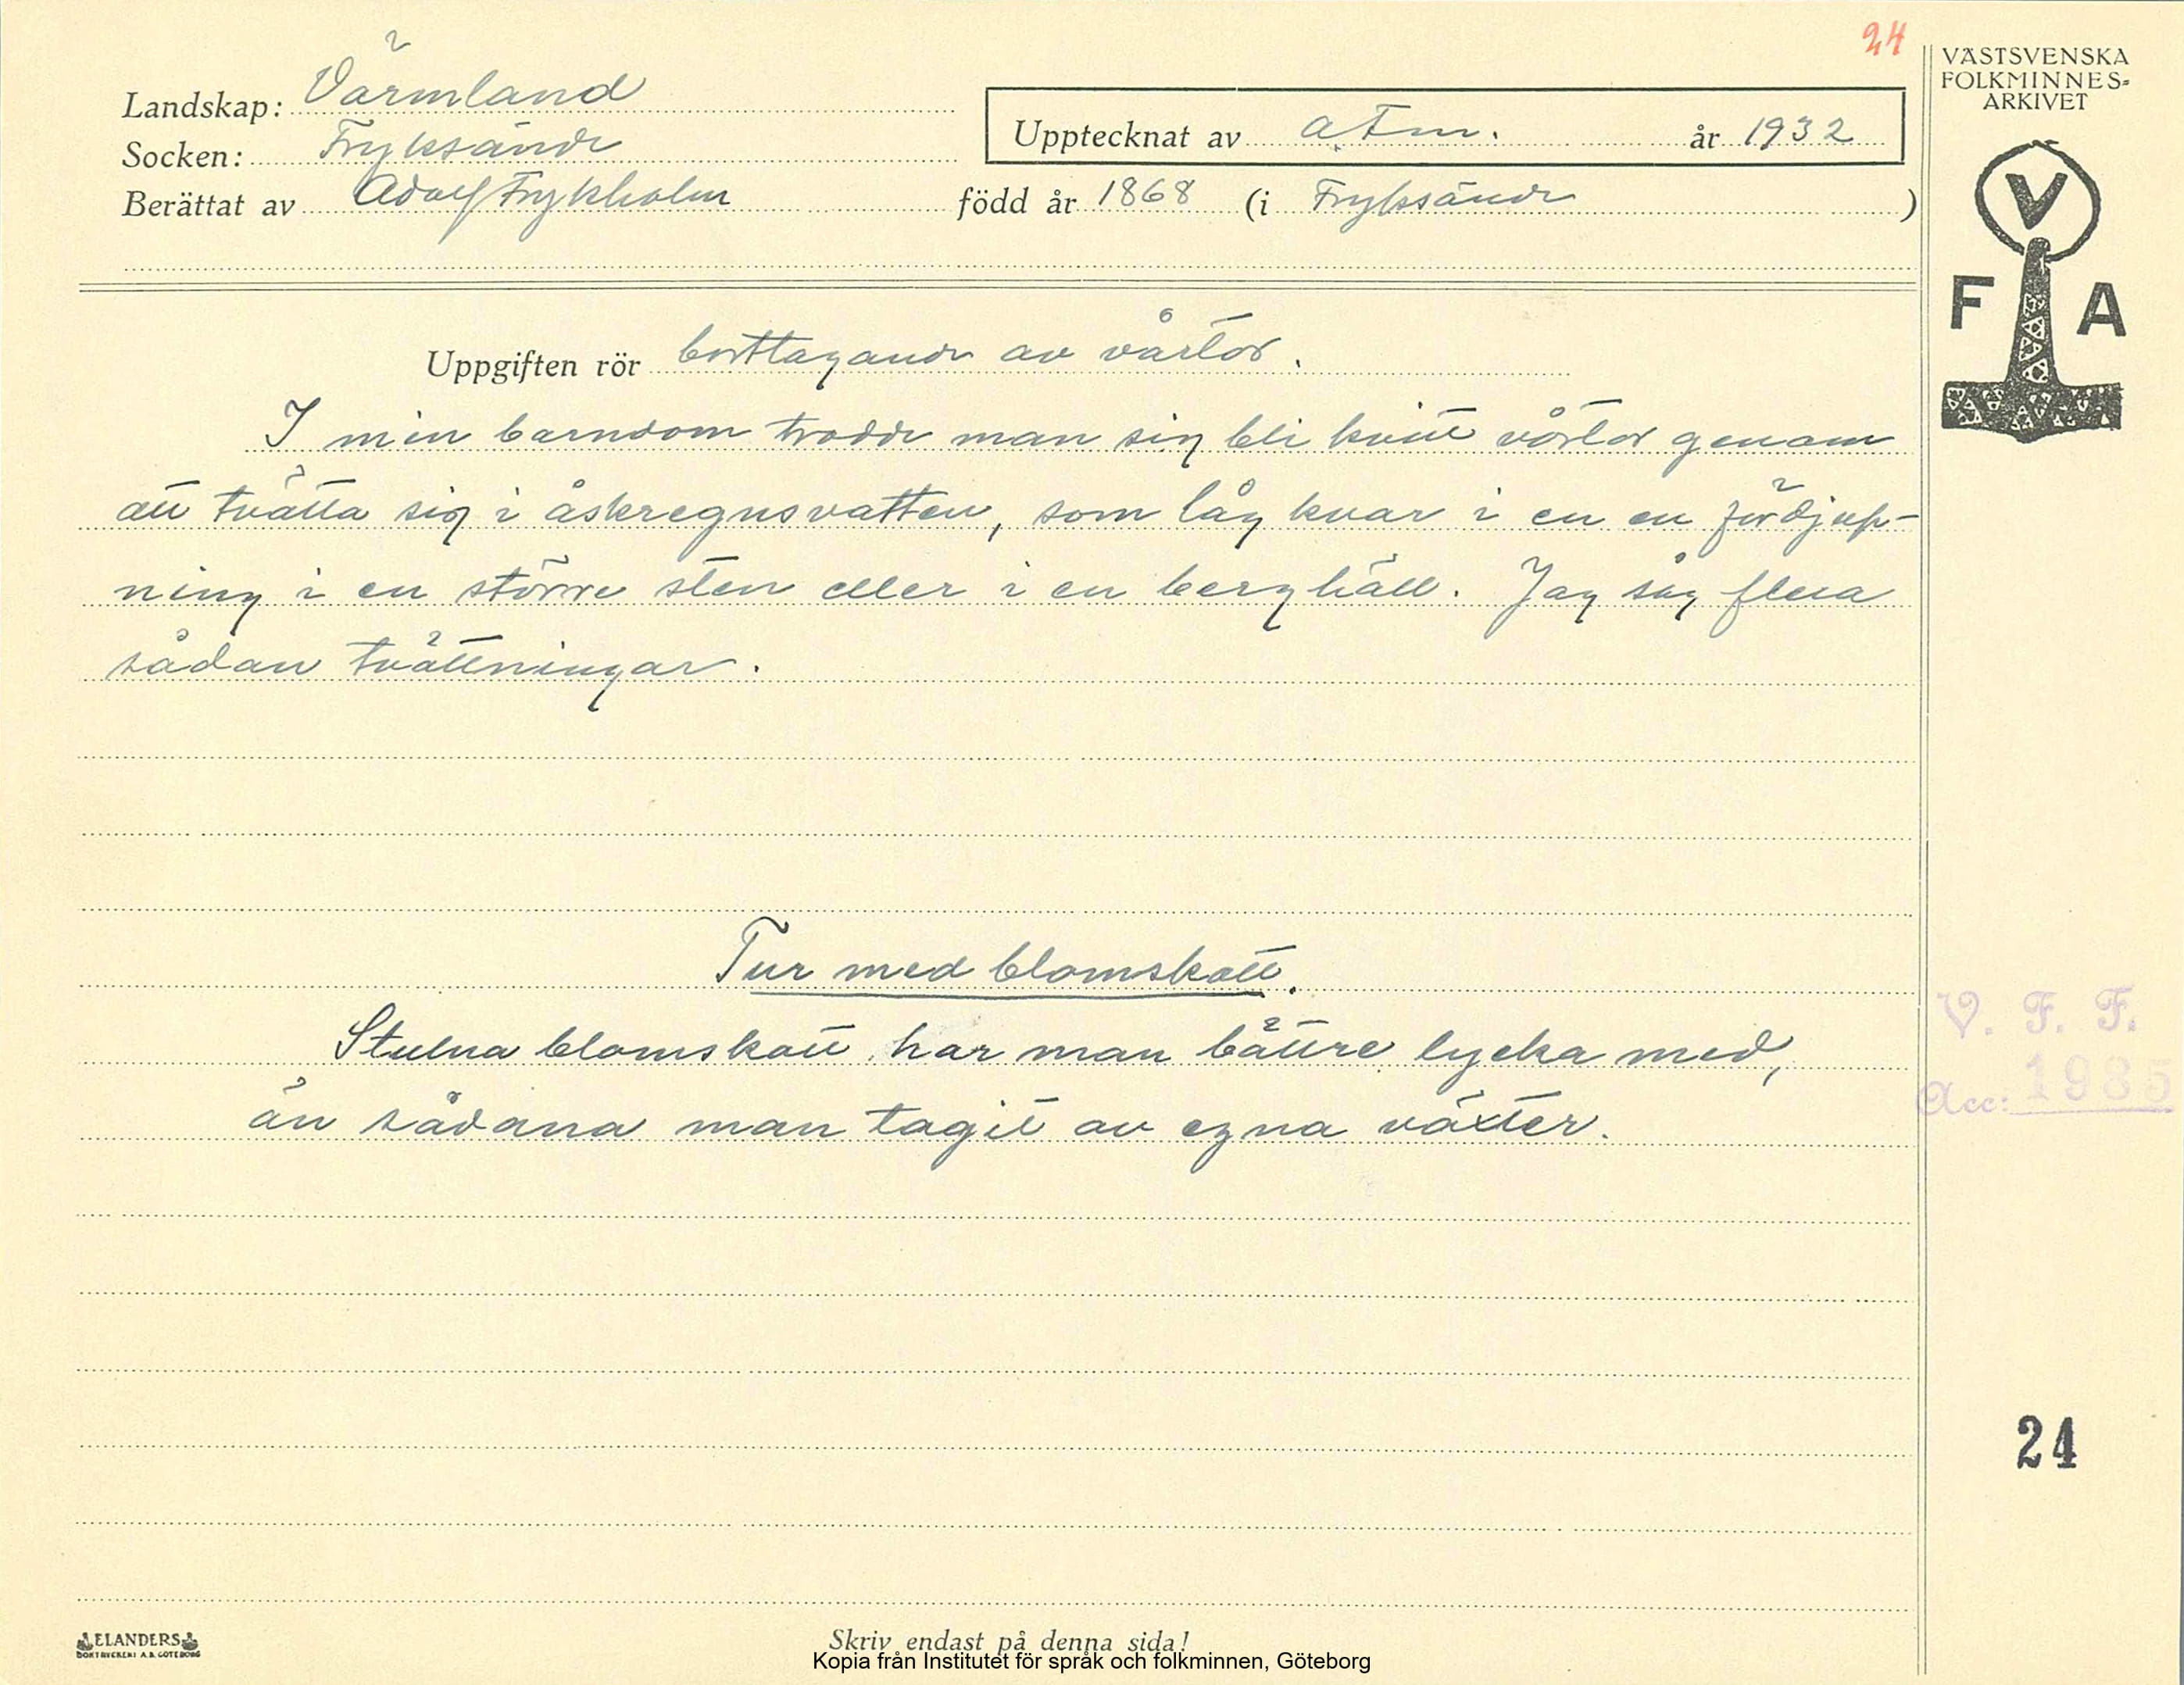 24
Landskap: Värmland
Socken: Fryksände
Upptecknat av a. Fm. år 1932
Berättat av Adolf Frykholm född år 1868 (i Fryksände )
VÄSTSVENSKA
FOLKMINNES-
ARKIVET
V
F A
Uppgiften rör borttagande av vårtor.
I min barndom trodde man sig bli kvitt vårtor genom
att tvätta sig i åskregnsvatten, som låg kvar i en en fördjup-
ning i en större sten eller i en berghäll. Jag såg flera
sådan tvättningar.
Tur med blomskott.
Stulna blomskott har man bättre lycka med,
än sådana man tagit av egna växter.
V. F. F.
Acc: 1985
24
ELANDERS
BOKTRYCKERI A.B. GÖTEBORG
Skriv endast på denna sida!
Kopia från Institutet för språk och folkminnen, Göteborg